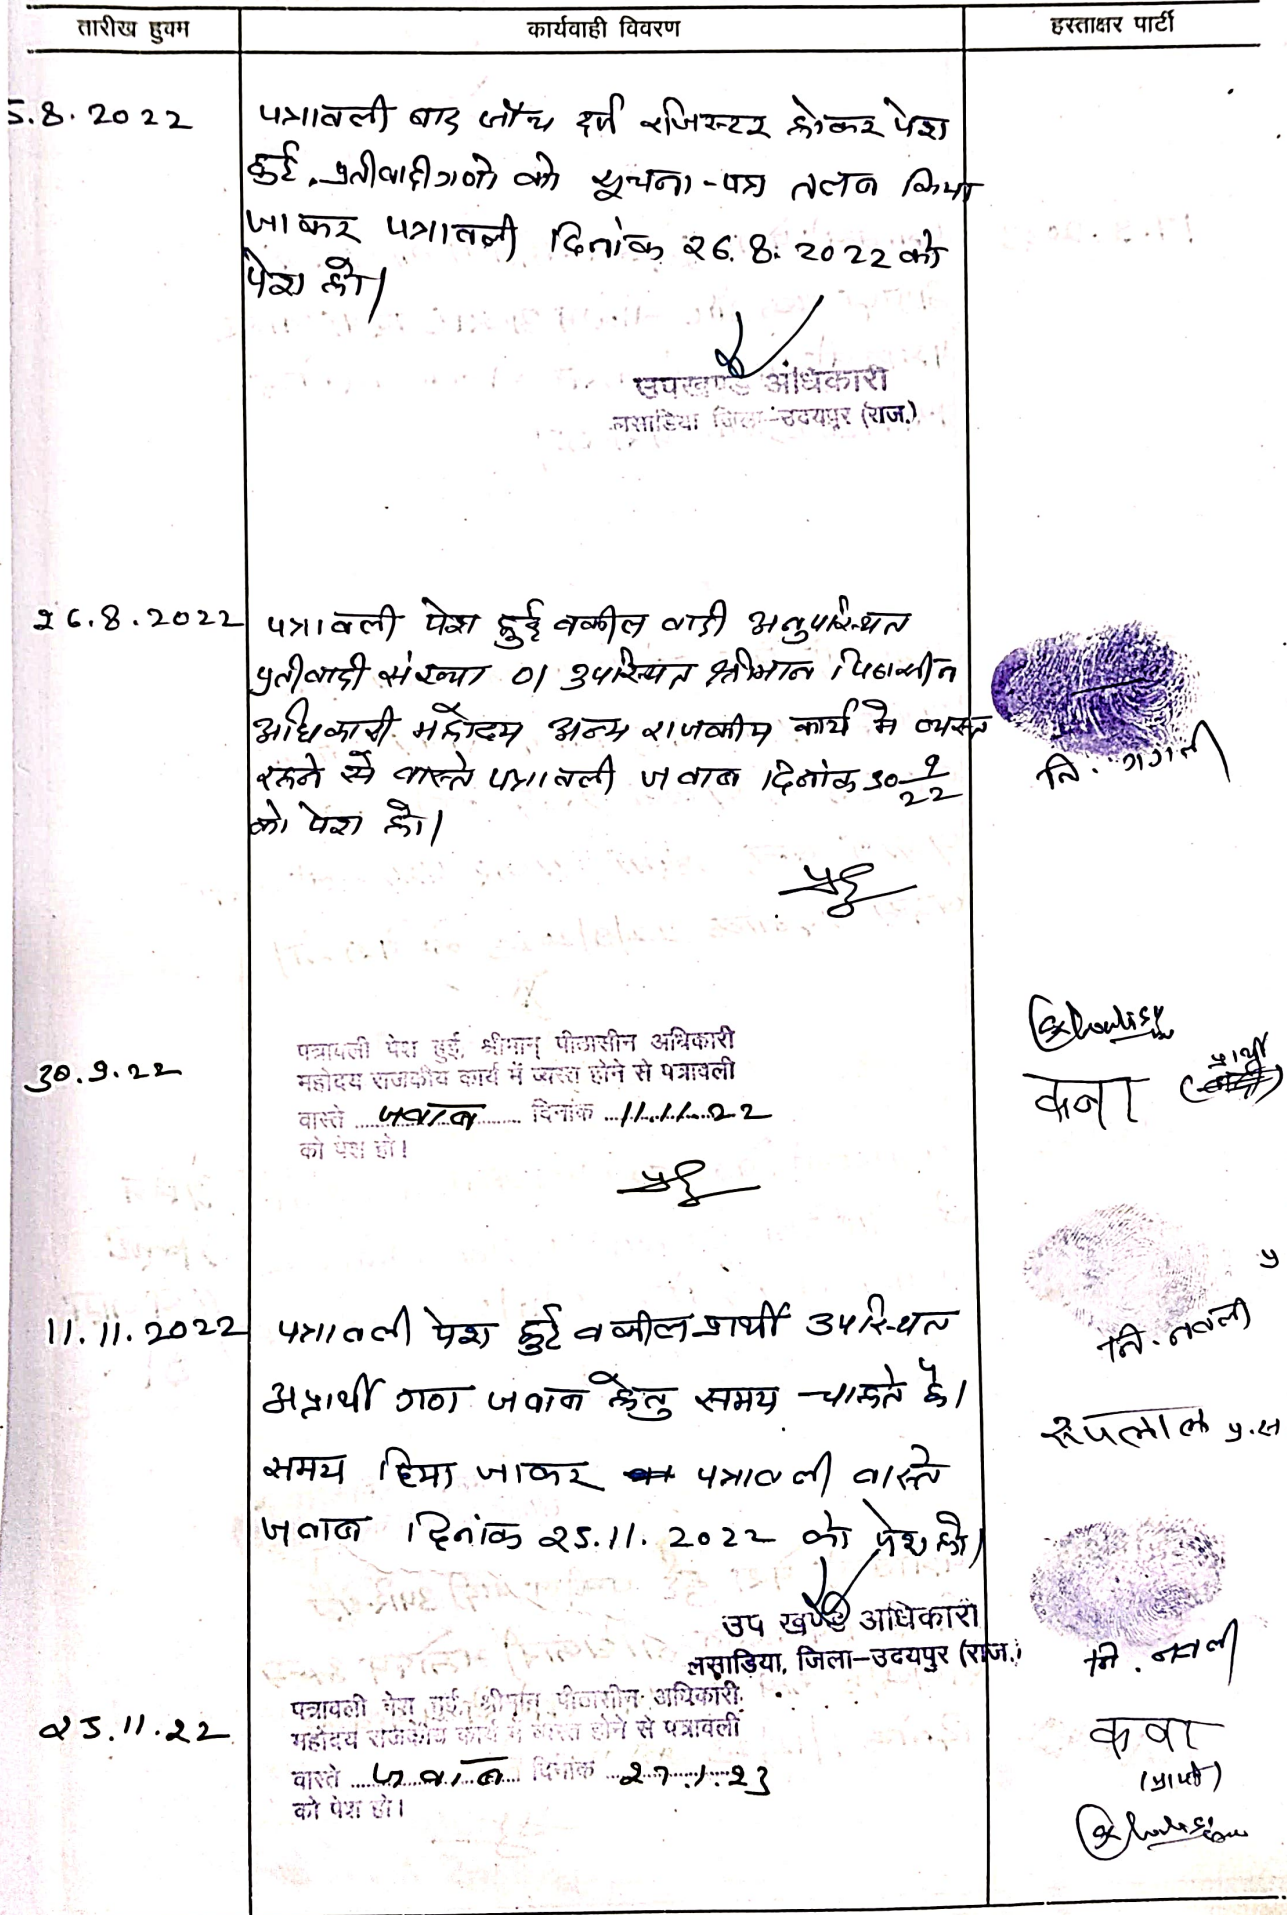 तारीख हुक्म कार्यवाही विवरण हस्ताक्षर पार्टी
5.8.2022 पत्रावली बाद जाँच दर्ज रजिस्टर होकर पेश
हुई. प्रतीवादीगणो को सूचना-पत्र तलब किया
जाकर पत्रावली दिनांक 26.8.2022 को
पेश हो।
उपखण्ड अधिकारी
लसाडिया जिला-उदयपुर (राज.)
26.8.2022 पत्रावली पेश हुई वकील वादी अनुपस्थित
प्रतीवादी संख्या 01 उपस्थित श्रीमान पिठासीन
अधिकारी महोदय अन्य राजकीय कार्य मे व्यस्त
रहने से वास्ते पत्रावली जवाब दिनांक 30 9/22
को पेश हो।
नि.
30.9.22 पत्रावली पेश हुई, श्रीमान् पीठासीन अधिकारी
महोदय राजकीय कार्य में व्यस्त होने से पत्रावली
वास्ते जवाब दिनांक 11.11.22
को पेश हो।
प्रार्थी
नि. नवली
11.11.2022 पत्रावली पेश हुई वकील प्रार्थी उपस्थित
अप्रार्थी गण जवाब हेतु समय चाहते है।
समय दिया जाकर पत्रावली वास्ते
जवाब दिनांक 25.11.2022 को पेश हो।
रूपलाल
उप खण्ड अधिकारी
लसाडिया, जिला-उदयपुर (राज.)
नि.
25.11.22 पत्रावली पेश हुई, श्रीमान् पीठासीन अधिकारी
महोदय राजकीय कार्य में व्यस्त होने से पत्रावली
वास्ते जवाब दिनांक 27.1.23
को पेश हो।
(प्रार्थी)